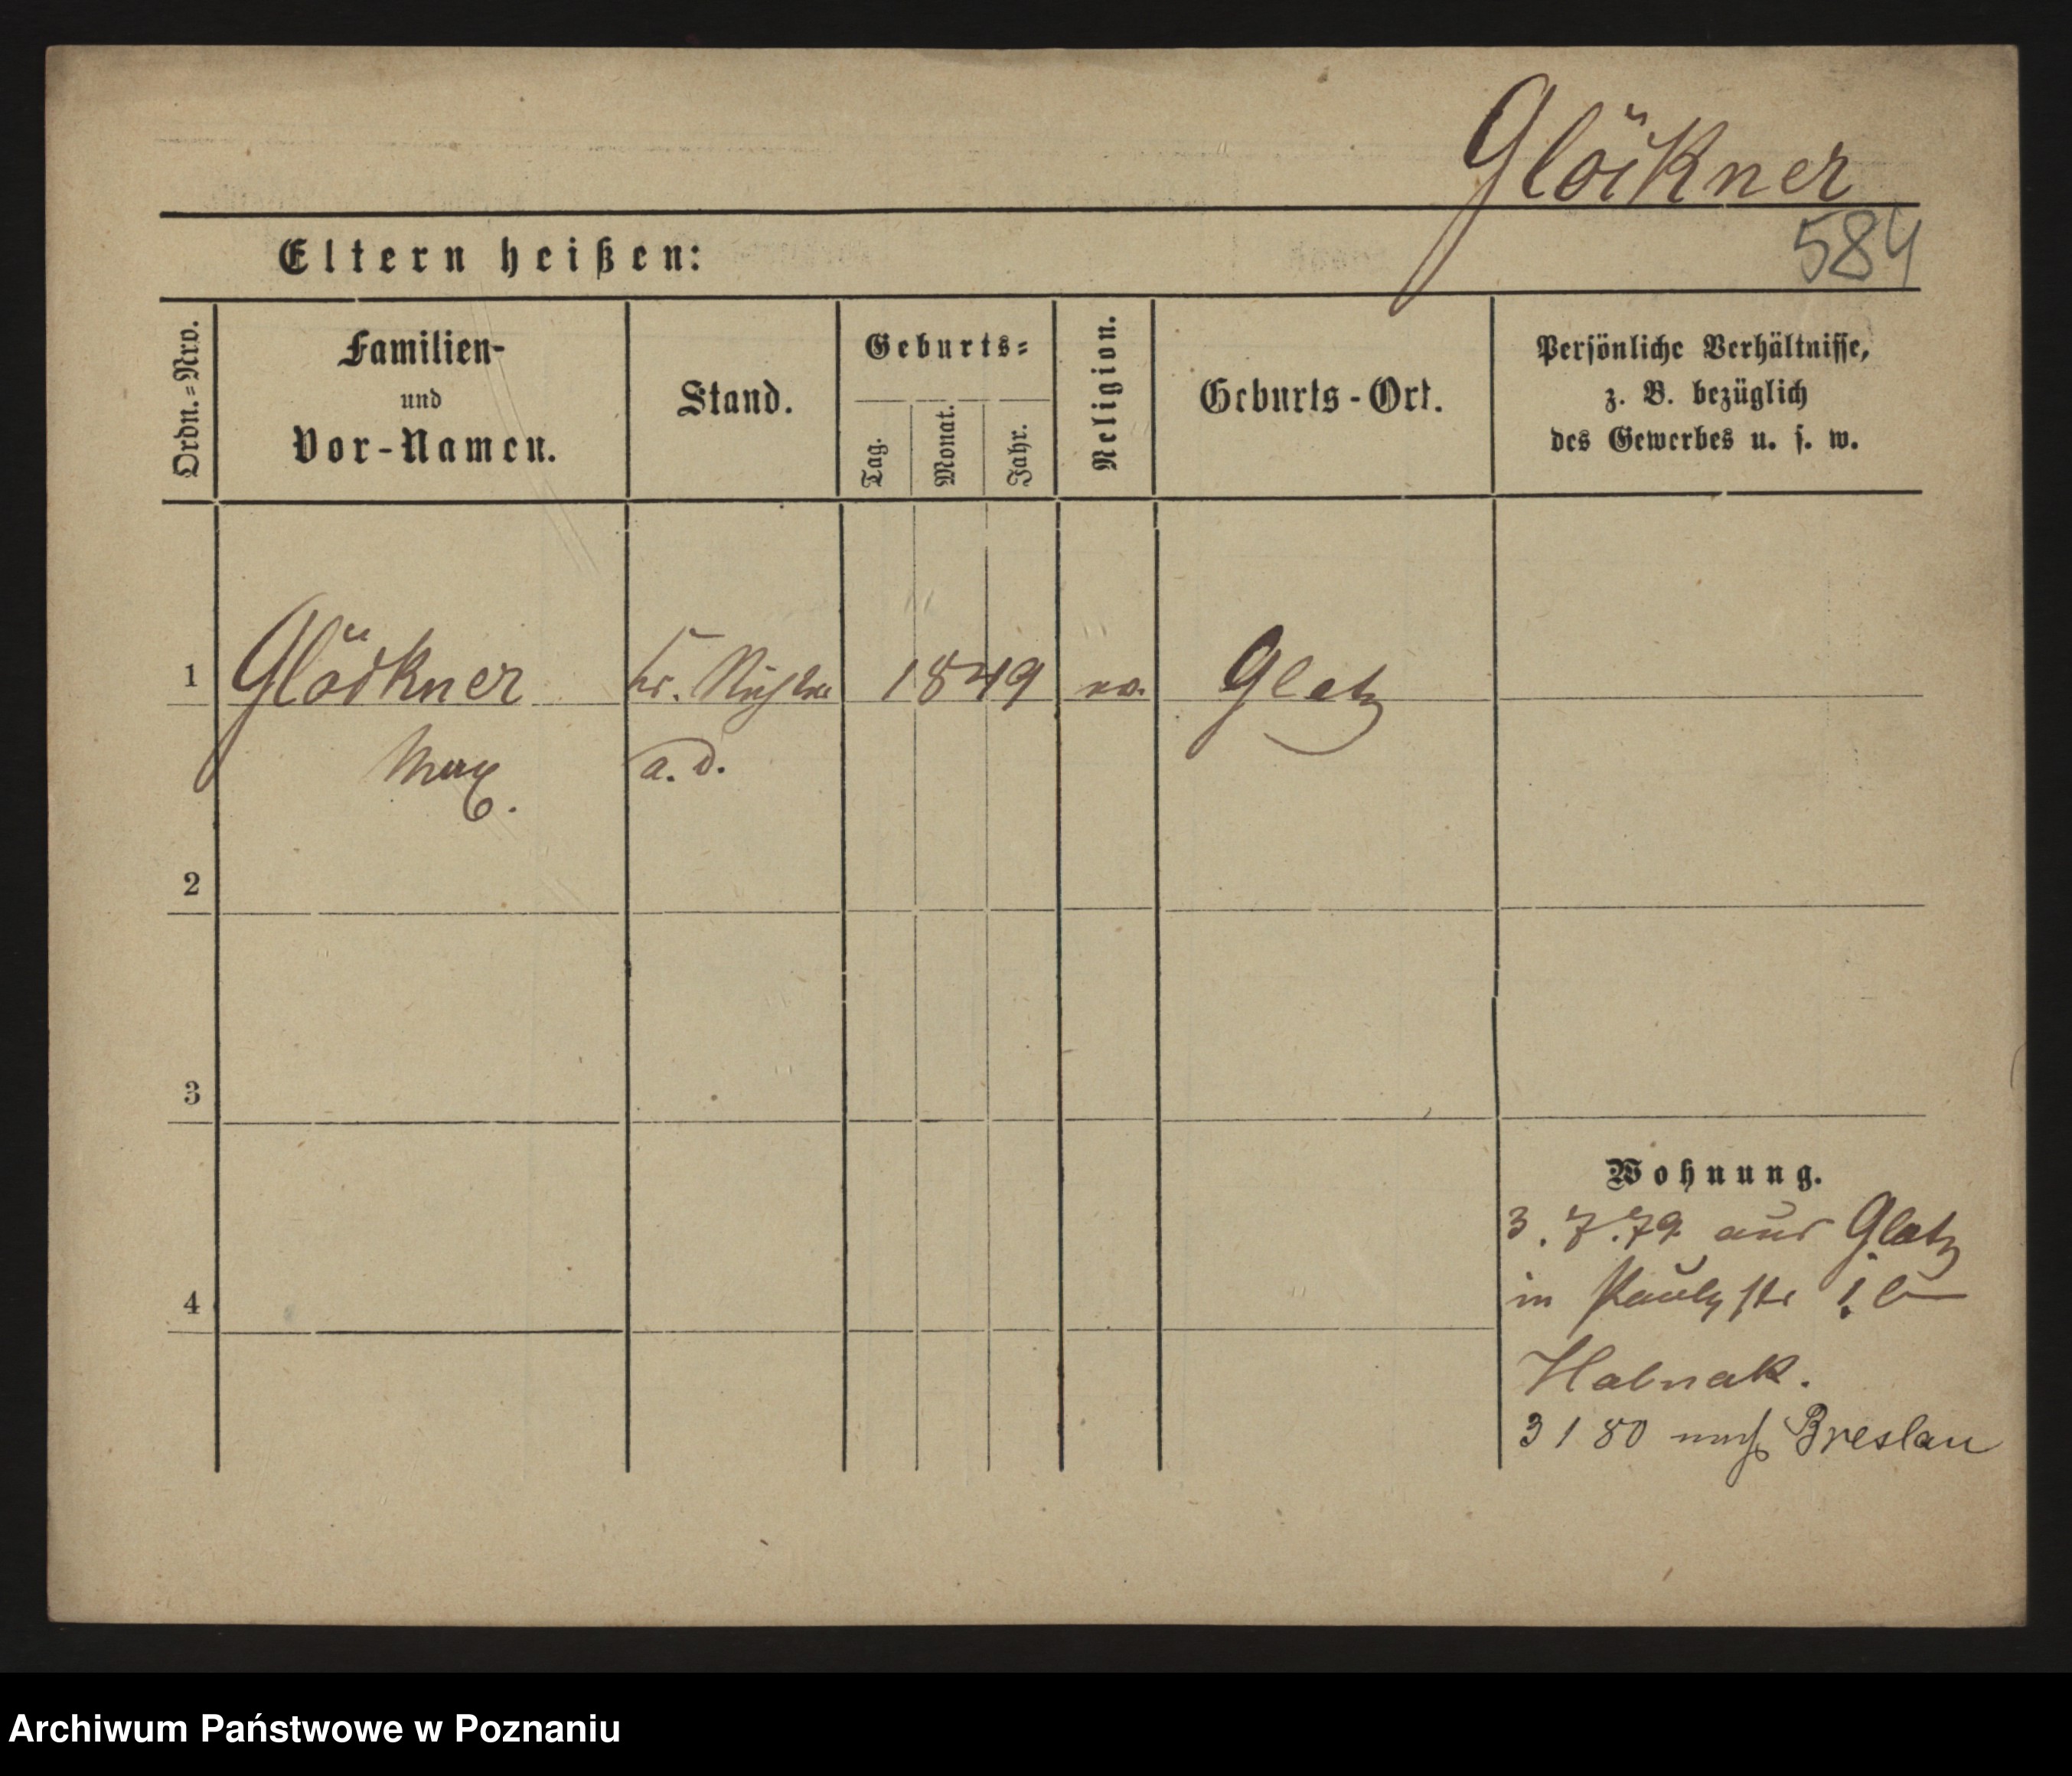 Glöckner
584
Eltern heißen:
Ordn.=Nro.
Familien-
und
Vor-Namen.
Stand.
Geburts=
Tag.
Monat.
Jahr.
Religion.
Geburts-Ort.
Persönliche Verhältnisse,
z. B. bezüglich
des Gewerbes u. s. w.
1 Glöckner 1849 Glatz
Max. a. D.
2
3
Wohnung.
3.7.79 aus Glatz
4
in
Habnak.
3 1 80 nach Breslau
Archiwum Państwowe w Poznaniu